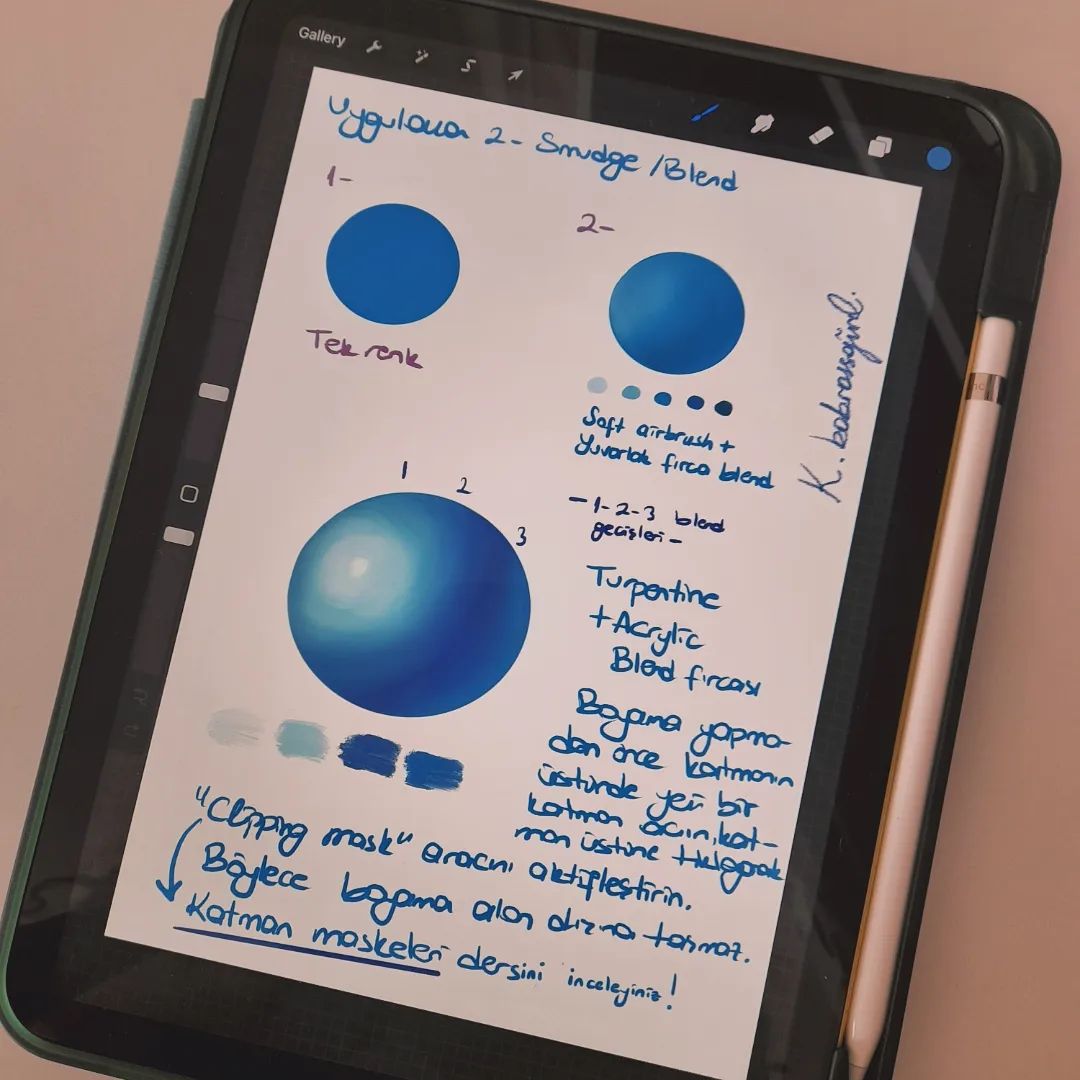 Gallery
Uygulama 2- Smudge /Blend
1-
Tek renk
2-
Soft airbrush +
Yuvarlak fırça blend
1 2
3
- 1-2-3 blend
geçişleri -
Turpentine
+Acrylic
Blend fırçası
Boyama yapma-
dan önce katmanın
üstünde yeni bir
katman açın, kat-
man üstüne tıklayarak
"Clipping mask" aracını aktifleştirin.
Böylece boyama alan dışına taşmaz.
Katman maskeleri dersini inceleyiniz!